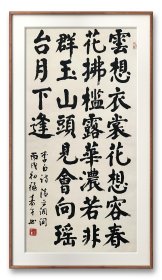 雲想衣裳花想容春
花拂檻露華濃若非
群玉山頭見會向瑶
台月下逢
李白詩
丙戌初